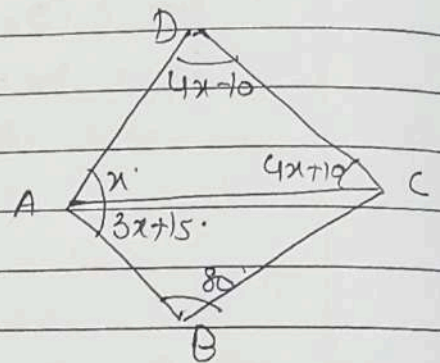 D
4x-10
x°
4x+10
A
C
3x+15°
80°
B